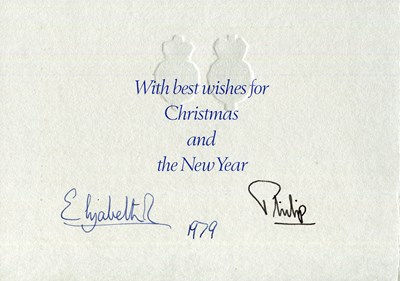 With best wishes for
Christmas
and
the New Year
Elizabeth R
1979
Philip